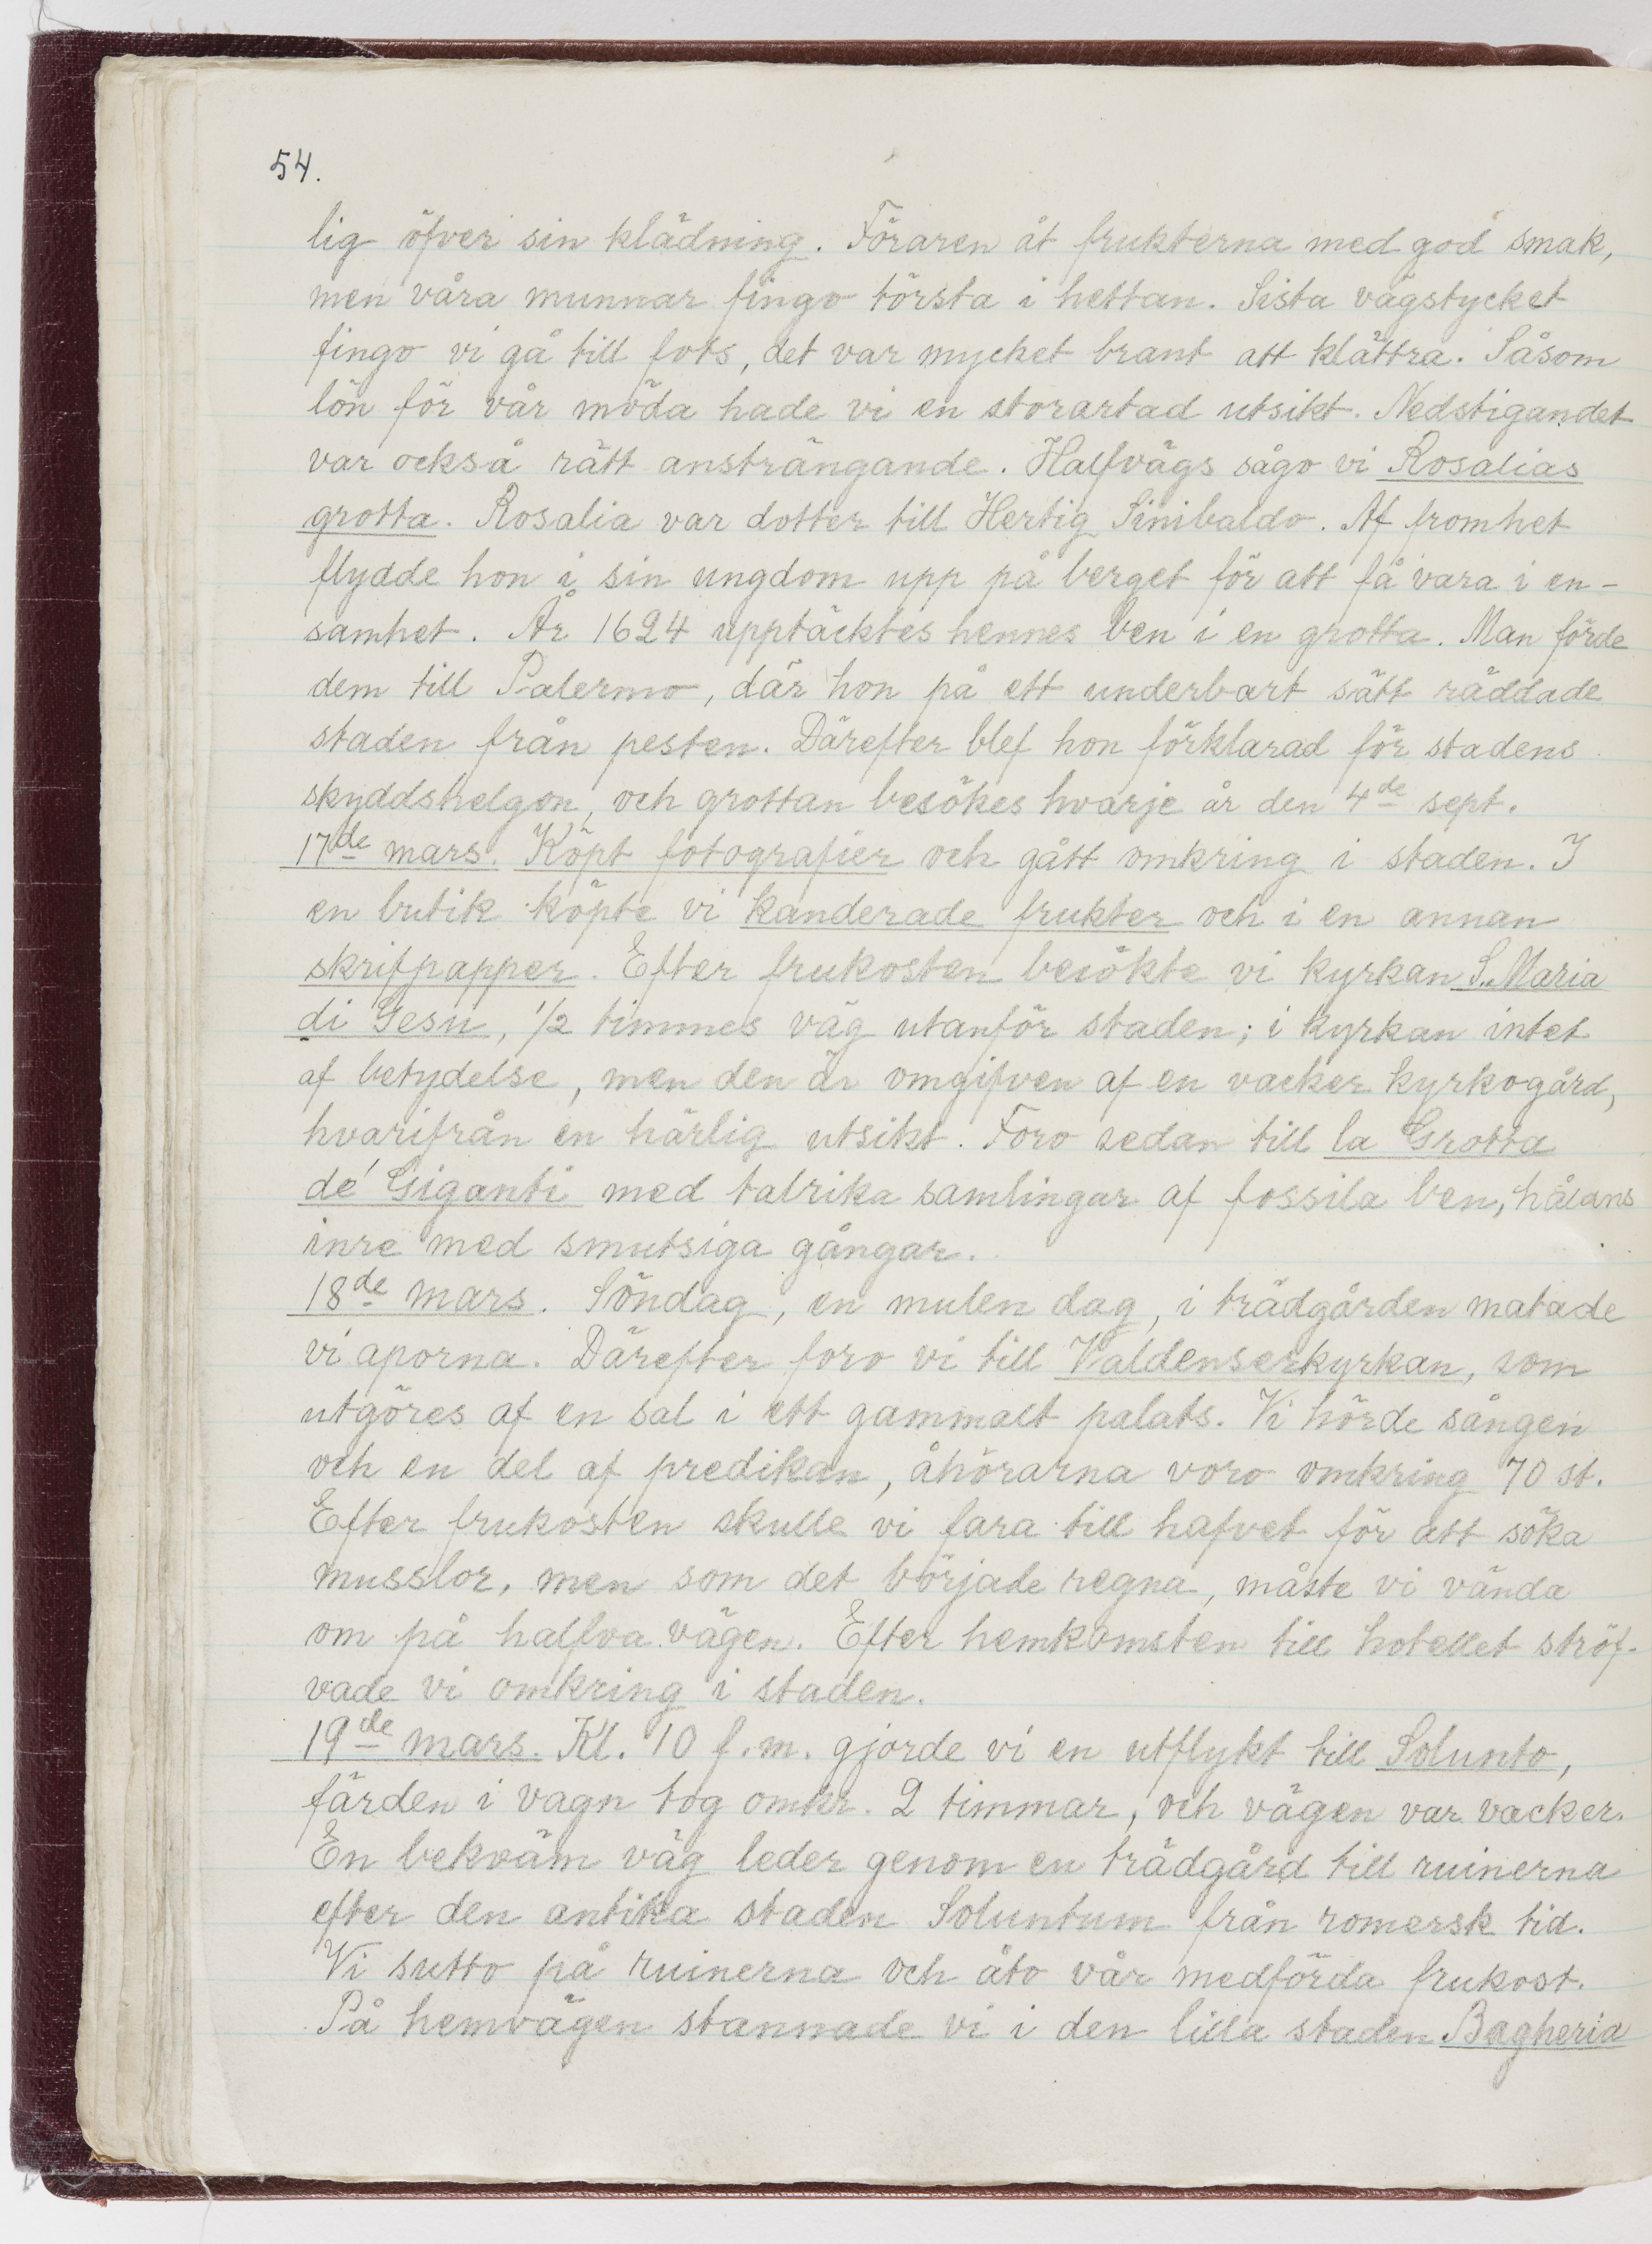 54.
lig öfver sin klädning. Föraren åt frukterna med god smak,
men våra munnar fingo törsta i hettan. Sista vägstycket
fingo vi gå till fots, det var mycket brant att klättra. Såsom
lön för vår möda hade vi en storartad utsikt. Nedstigandet
var också rätt ansträngande. Halfvägs sågo vi Rosalias
grotta. Rosalia var dotter till Hertig Sinibaldo. Af fromhet
flydde hon i sin ungdom upp på berget för att få vara i en-
samhet. År 1624 upptäcktes hennes ben i en grotta. Man förde
dem till Palermo, där hon på ett underbart sätt räddade
staden från pesten. Därefter blef hon förklarad för stadens
skyddshelgon, och grottan besökes hvarje år den 4de sept.
17de mars. Köpt fotografier och gått omkring i staden. I
en butik köpte vi kanderade frukter och i en annan
skrifpapper. Efter frukosten besökte vi kyrkan S. Maria
di Gesu, 1/2 timmes väg utanför staden; i kyrkan intet
af betydelse, men den är omgifven af en vacker kyrkogård,
hvarifrån en härlig utsikt. Foro sedan till la Grotta
de' Giganti med talrika samlingar af fossila ben, hålans
inre med smutsiga gångar.
18de mars. Söndag, en mulen dag, i trädgården matade
vi aporna. Därefter foro vi till Valdenserkyrkan, som
utgöres af en sal i ett gammalt palats. Vi hörde sången
och en del af predikan, åhörarna voro omkring 70 st.
Efter frukosten skulle vi fara till hafvet för att söka
musslor, men som det började regna, måste vi vända
om på halfva vägen. Efter hemkomsten till hotellet ströf-
vade vi omkring i staden.
19de mars. Kl. 10 f.m. gjorde vi en utflykt till Solunto,
färden i vagn tog omkr. 2 timmar, och vägen var vacker.
En bekväm väg leder genom en trädgård till ruinerna
efter den antika staden Soluntum från romersk tid.
Vi sutto på ruinerna och åto vår medförda frukost.
På hemvägen stannade vi i den lilla staden Bagheria